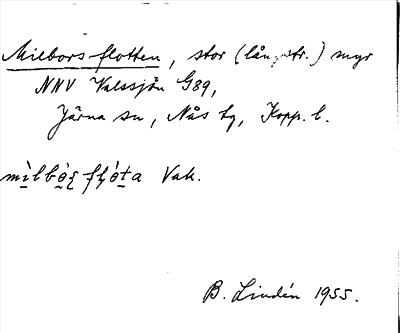 Milbors flotten, stor (långstr.) myr
NNV Valssjön G89,
Järna sn, Nås tg, Kopp. l.
Vak.
B. Lindén 1955.